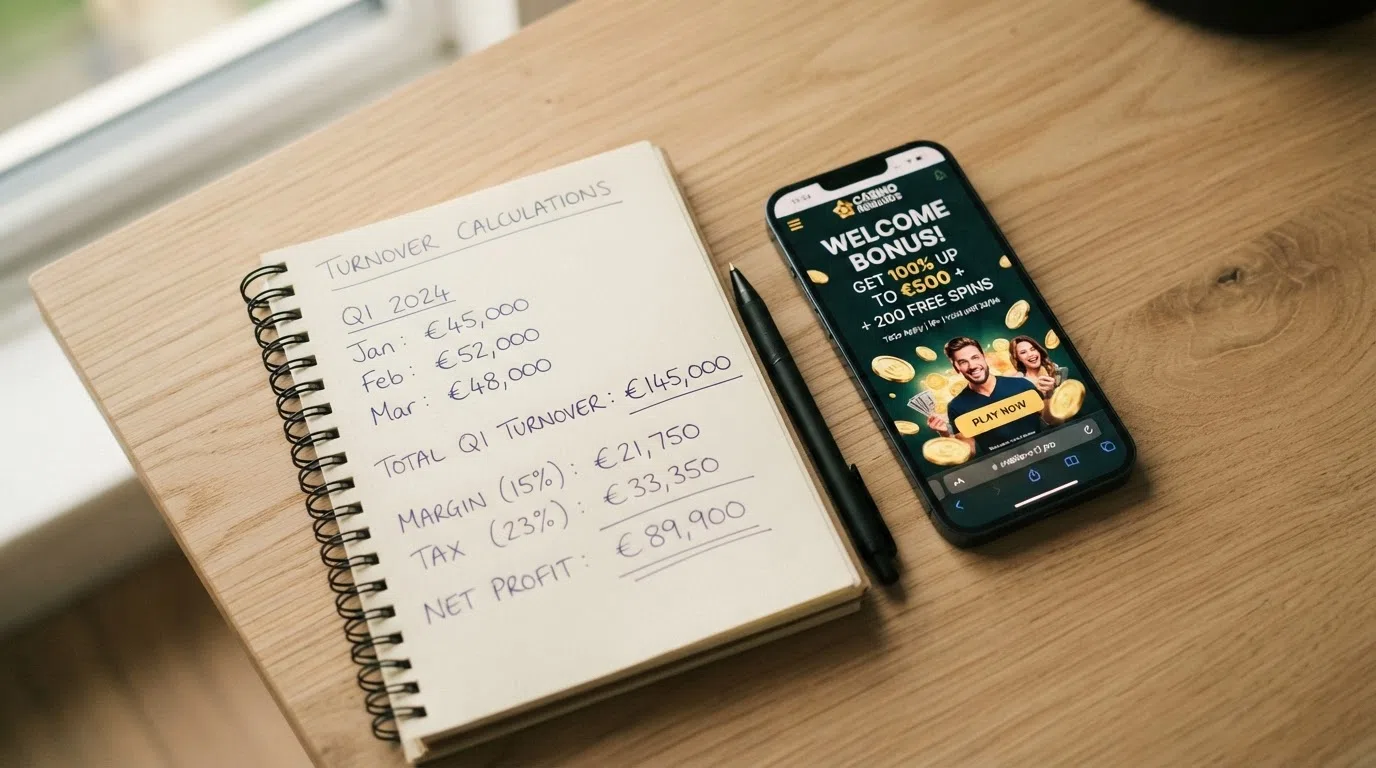 TURNOVER CALCULATIONS
Q1 2024
Jan: €45,000
Feb: €52,000
Mar: €48,000
TOTAL Q1 TURNOVER: €145,000
MARGIN (15%): €21,750
TAX (23%): €33,350
NET PROFIT: €89,900
WELCOME
BONUS!
GET 100% UP
TO €500 +
+ 200 FREE SPINS
PLAY NOW